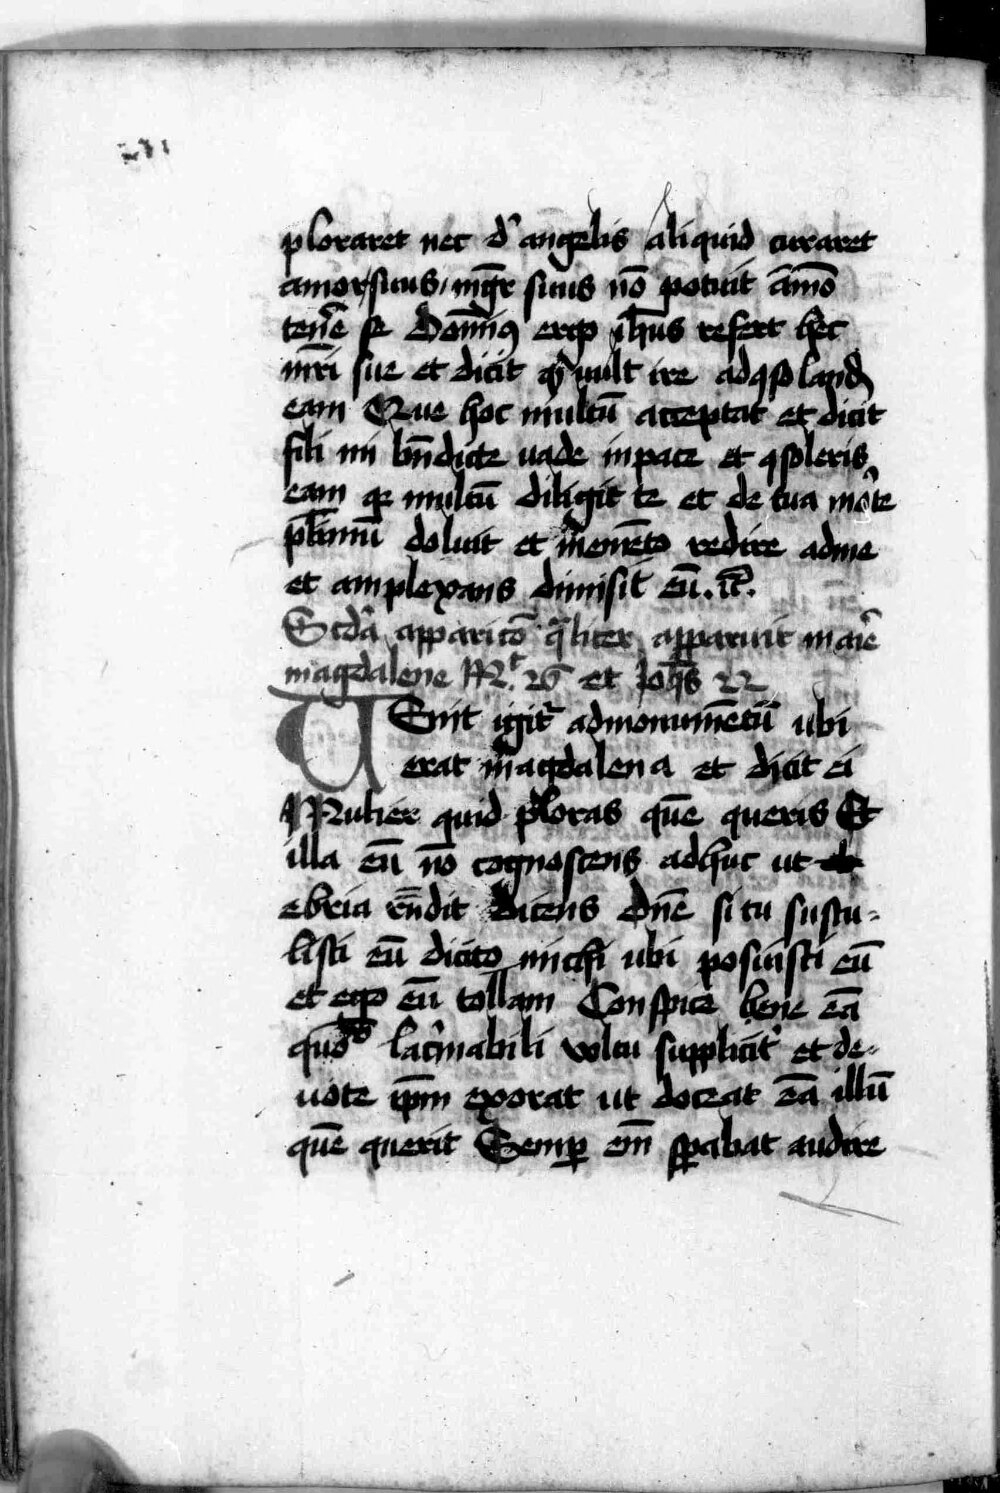 ploraret nec d' angelis aliquid curaret
amor suus / mgr̄ suus nō potuit āmō
ten̄e se Domin9 ergo ih̄us refert hec
mr̄i sue et dicit qꝫ vult ire ad ɋsoland
eam Que hoc multū acceptat et dicit
fili mi bn̄dicte uade in pace et ɋsoleris
eam qr multū diligit te et de tua morte
pl̄imū doluit et memēto redire ad me
et amplexans dimisit eū. ic̄.
Scd̄a apparitō qualiter apparuit marie
magdalene Mt. 26 et Joh̄s 22
VEnit igit̄ ad monumētū ubi
erat magdalena et dicit ei
Mulier quid ploras quē queris Et
illa eū nō cognoscens adhuc ut
ebria rn̄dit dicens dn̄e si tu sustu-
listi eū dicito michi ubi posuisti eū
et ego eū tollam Conspice bene eā
quō lac'mabili voltu supplicit' et de-
uote ip̄m exorat ut doceat eā illū
quē querit Semꝑ em̄ sꝑabat audire